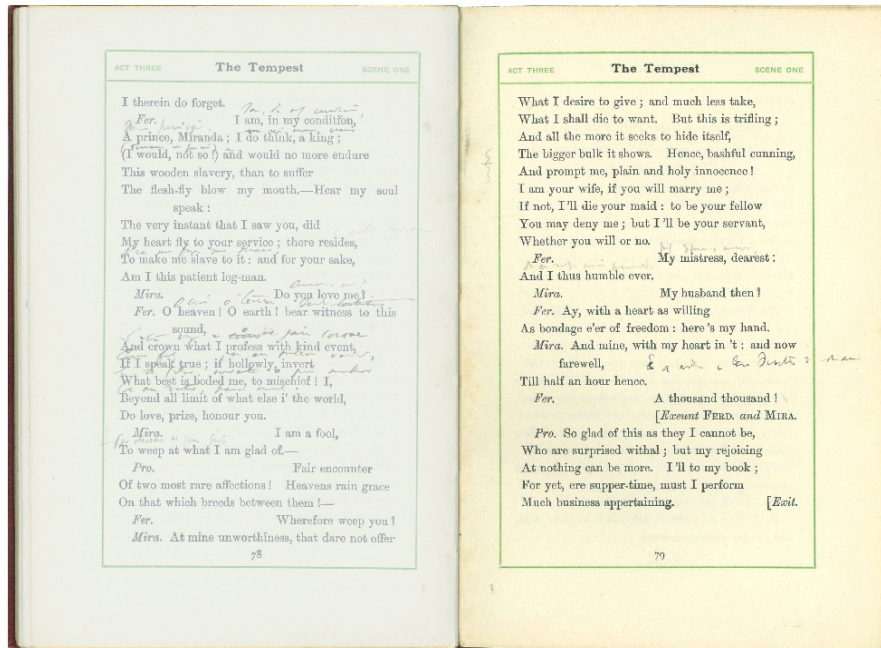 ACT THREE The Tempest SCENE ONE
I therein do forget.
Fer. I am, in my condition,
A prince, Miranda ; I do think, a king ;
(I would, not so !) and would no more endure
This wooden slavery, than to suffer
The flesh-fly blow my mouth.—Hear my soul
speak :
The very instant that I saw you, did
My heart fly to your service ; there resides,
To make me slave to it : and for your sake,
Am I this patient log-man.
Mira. Do you love me ?
Fer. O heaven ! O earth ! bear witness to this
sound,
And crown what I profess with kind event,
If I speak true ; if hollowly, invert
What best is boded me, to mischief ! I,
Beyond all limit of what else i' the world,
Do love, prize, honour you.
Mira. I am a fool,
To weep at what I am glad of.—
Pro. Fair encounter
Of two most rare affections ! Heavens rain grace
On that which breeds between them !—
Fer. Wherefore weep you ?
Mira. At mine unworthiness, that dare not offer
78
ACT THREE The Tempest SCENE ONE
What I desire to give ; and much less take,
What I shall die to want. But this is trifling ;
And all the more it seeks to hide itself,
The bigger bulk it shows. Hence, bashful cunning,
And prompt me, plain and holy innocence !
I am your wife, if you will marry me ;
If not, I'll die your maid : to be your fellow
You may deny me ; but I'll be your servant,
Whether you will or no.
Fer. My mistress, dearest :
And I thus humble ever.
Mira. My husband then ?
Fer. Ay, with a heart as willing
As bondage e'er of freedom : here's my hand.
Mira. And mine, with my heart in't : and now
farewell,
Till half an hour hence.
Fer. A thousand thousand !
[Exeunt FERD. and MIRA.
Pro. So glad of this as they I cannot be,
Who are surprised withal ; but my rejoicing
At nothing can be more. I'll to my book ;
For yet, ere supper-time, must I perform
Much business appertaining. [Exit.
79